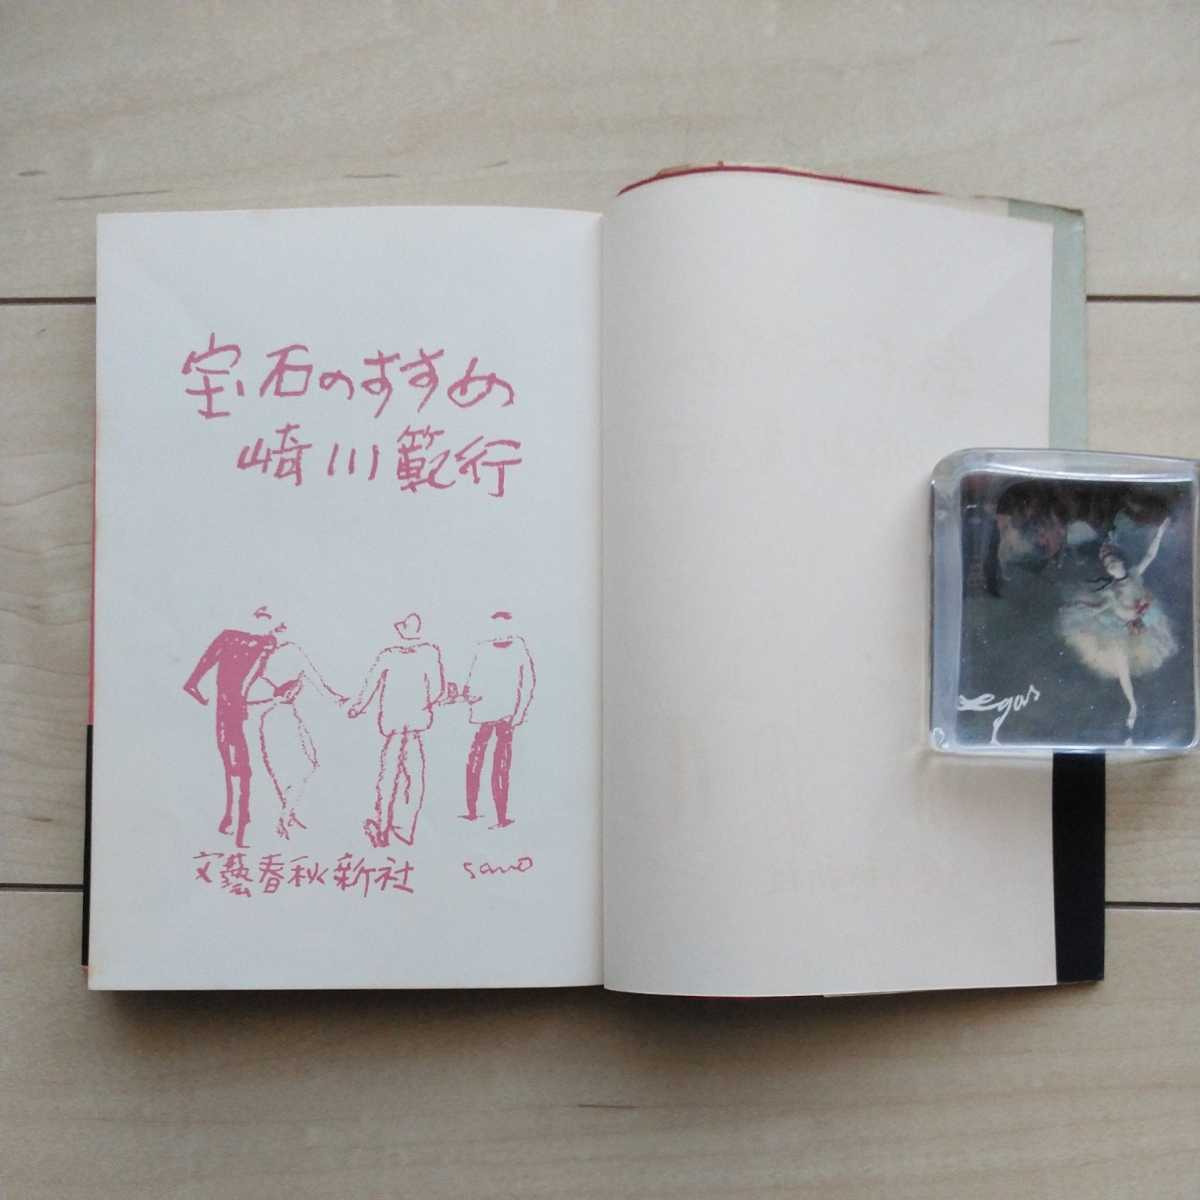 宝石のすすめ
崎川範行
文藝春秋新社
sano
Degas